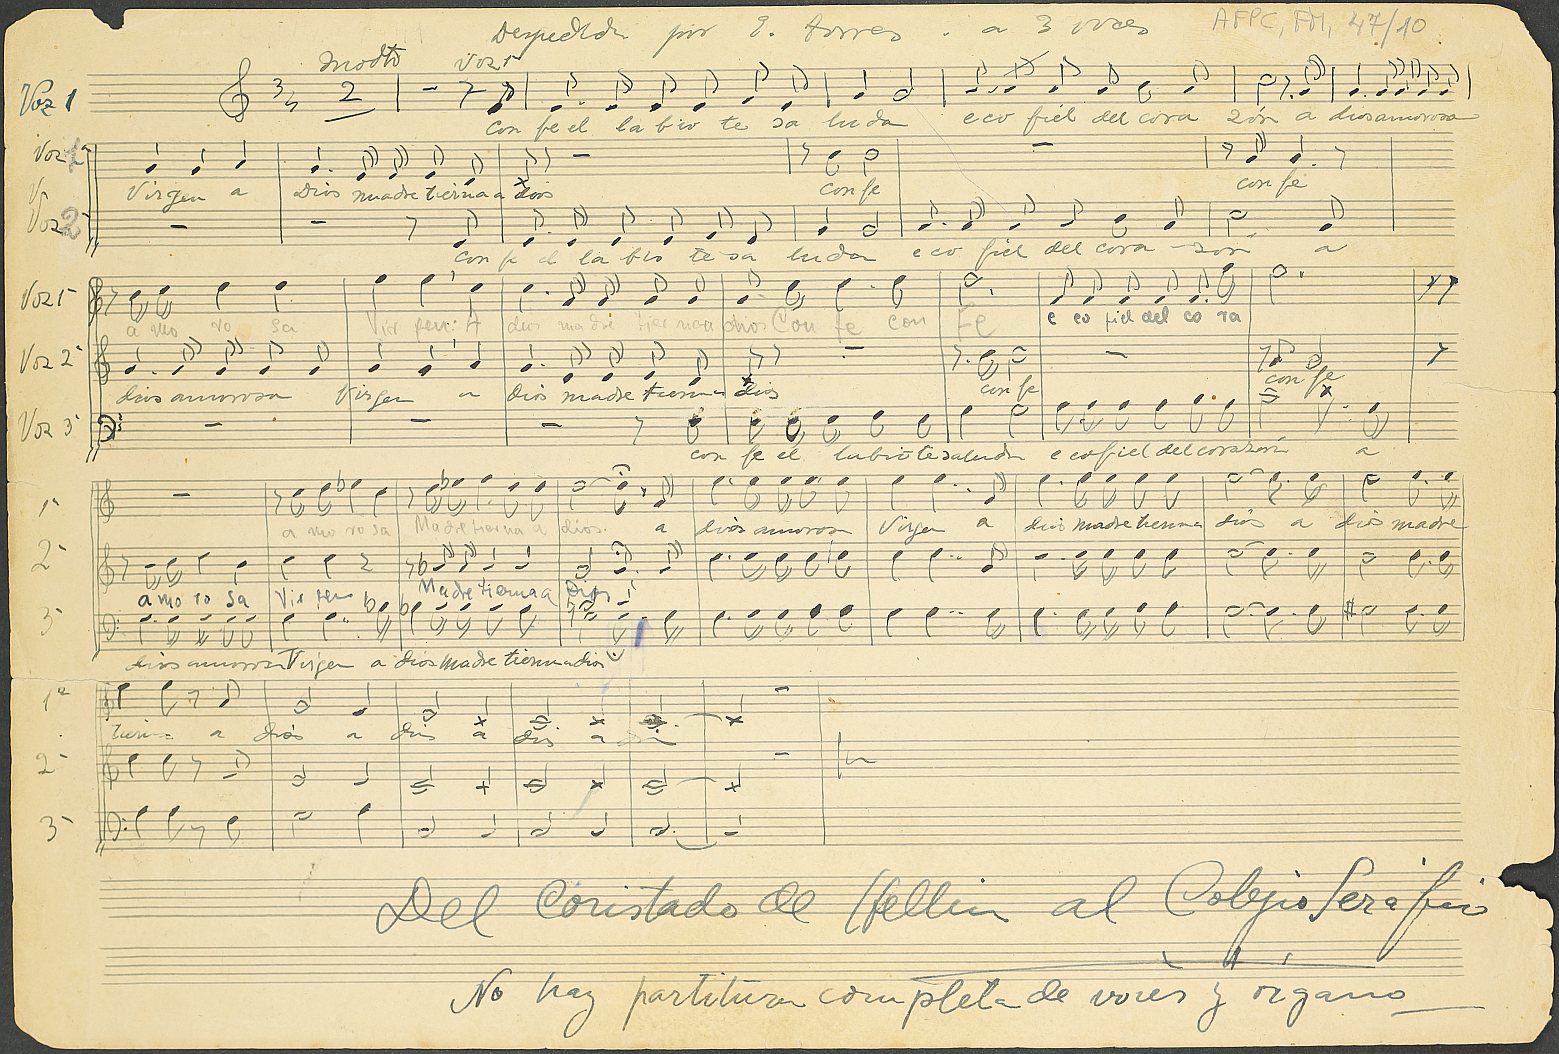 Despedida por E. Torres . a 3 voces AFPC, FM, 47/10
Modto Voz 1ª
Voz 1 3 4 2
con fe el labio te saluda eco fiel del cora zón a dios amorosa
Voz 1ª
Virgen a Dios madre tierna a dios con fe con fe
V
Voz 2ª
con fe el labio te saluda eco fiel del cora-zon a
Voz 1ª
amo ro sa Virgen: A dios madre tierna a dios Con fe con Fe e co fiel del co ra
Voz 2ª
dios amorosa Virgen a Dios madre tierna dios con fe con fe
Voz 3ª
con fe el labio te saluda eco fiel del corazón a
1ª
amorosa Madre tierna a dios. a dios amorosa Virgen a dios madre tierna dios a dios madre
2ª
amo ro sa Virgen Madre tierna a Dios
3ª
dios amorosa Virgen a dios madre tierna dios
1ª
tierna a dios a dios a dios a
2ª
3ª
Del Coristado de Hellin al Colegio Seráfico
No hay partitura completa de voces y organo